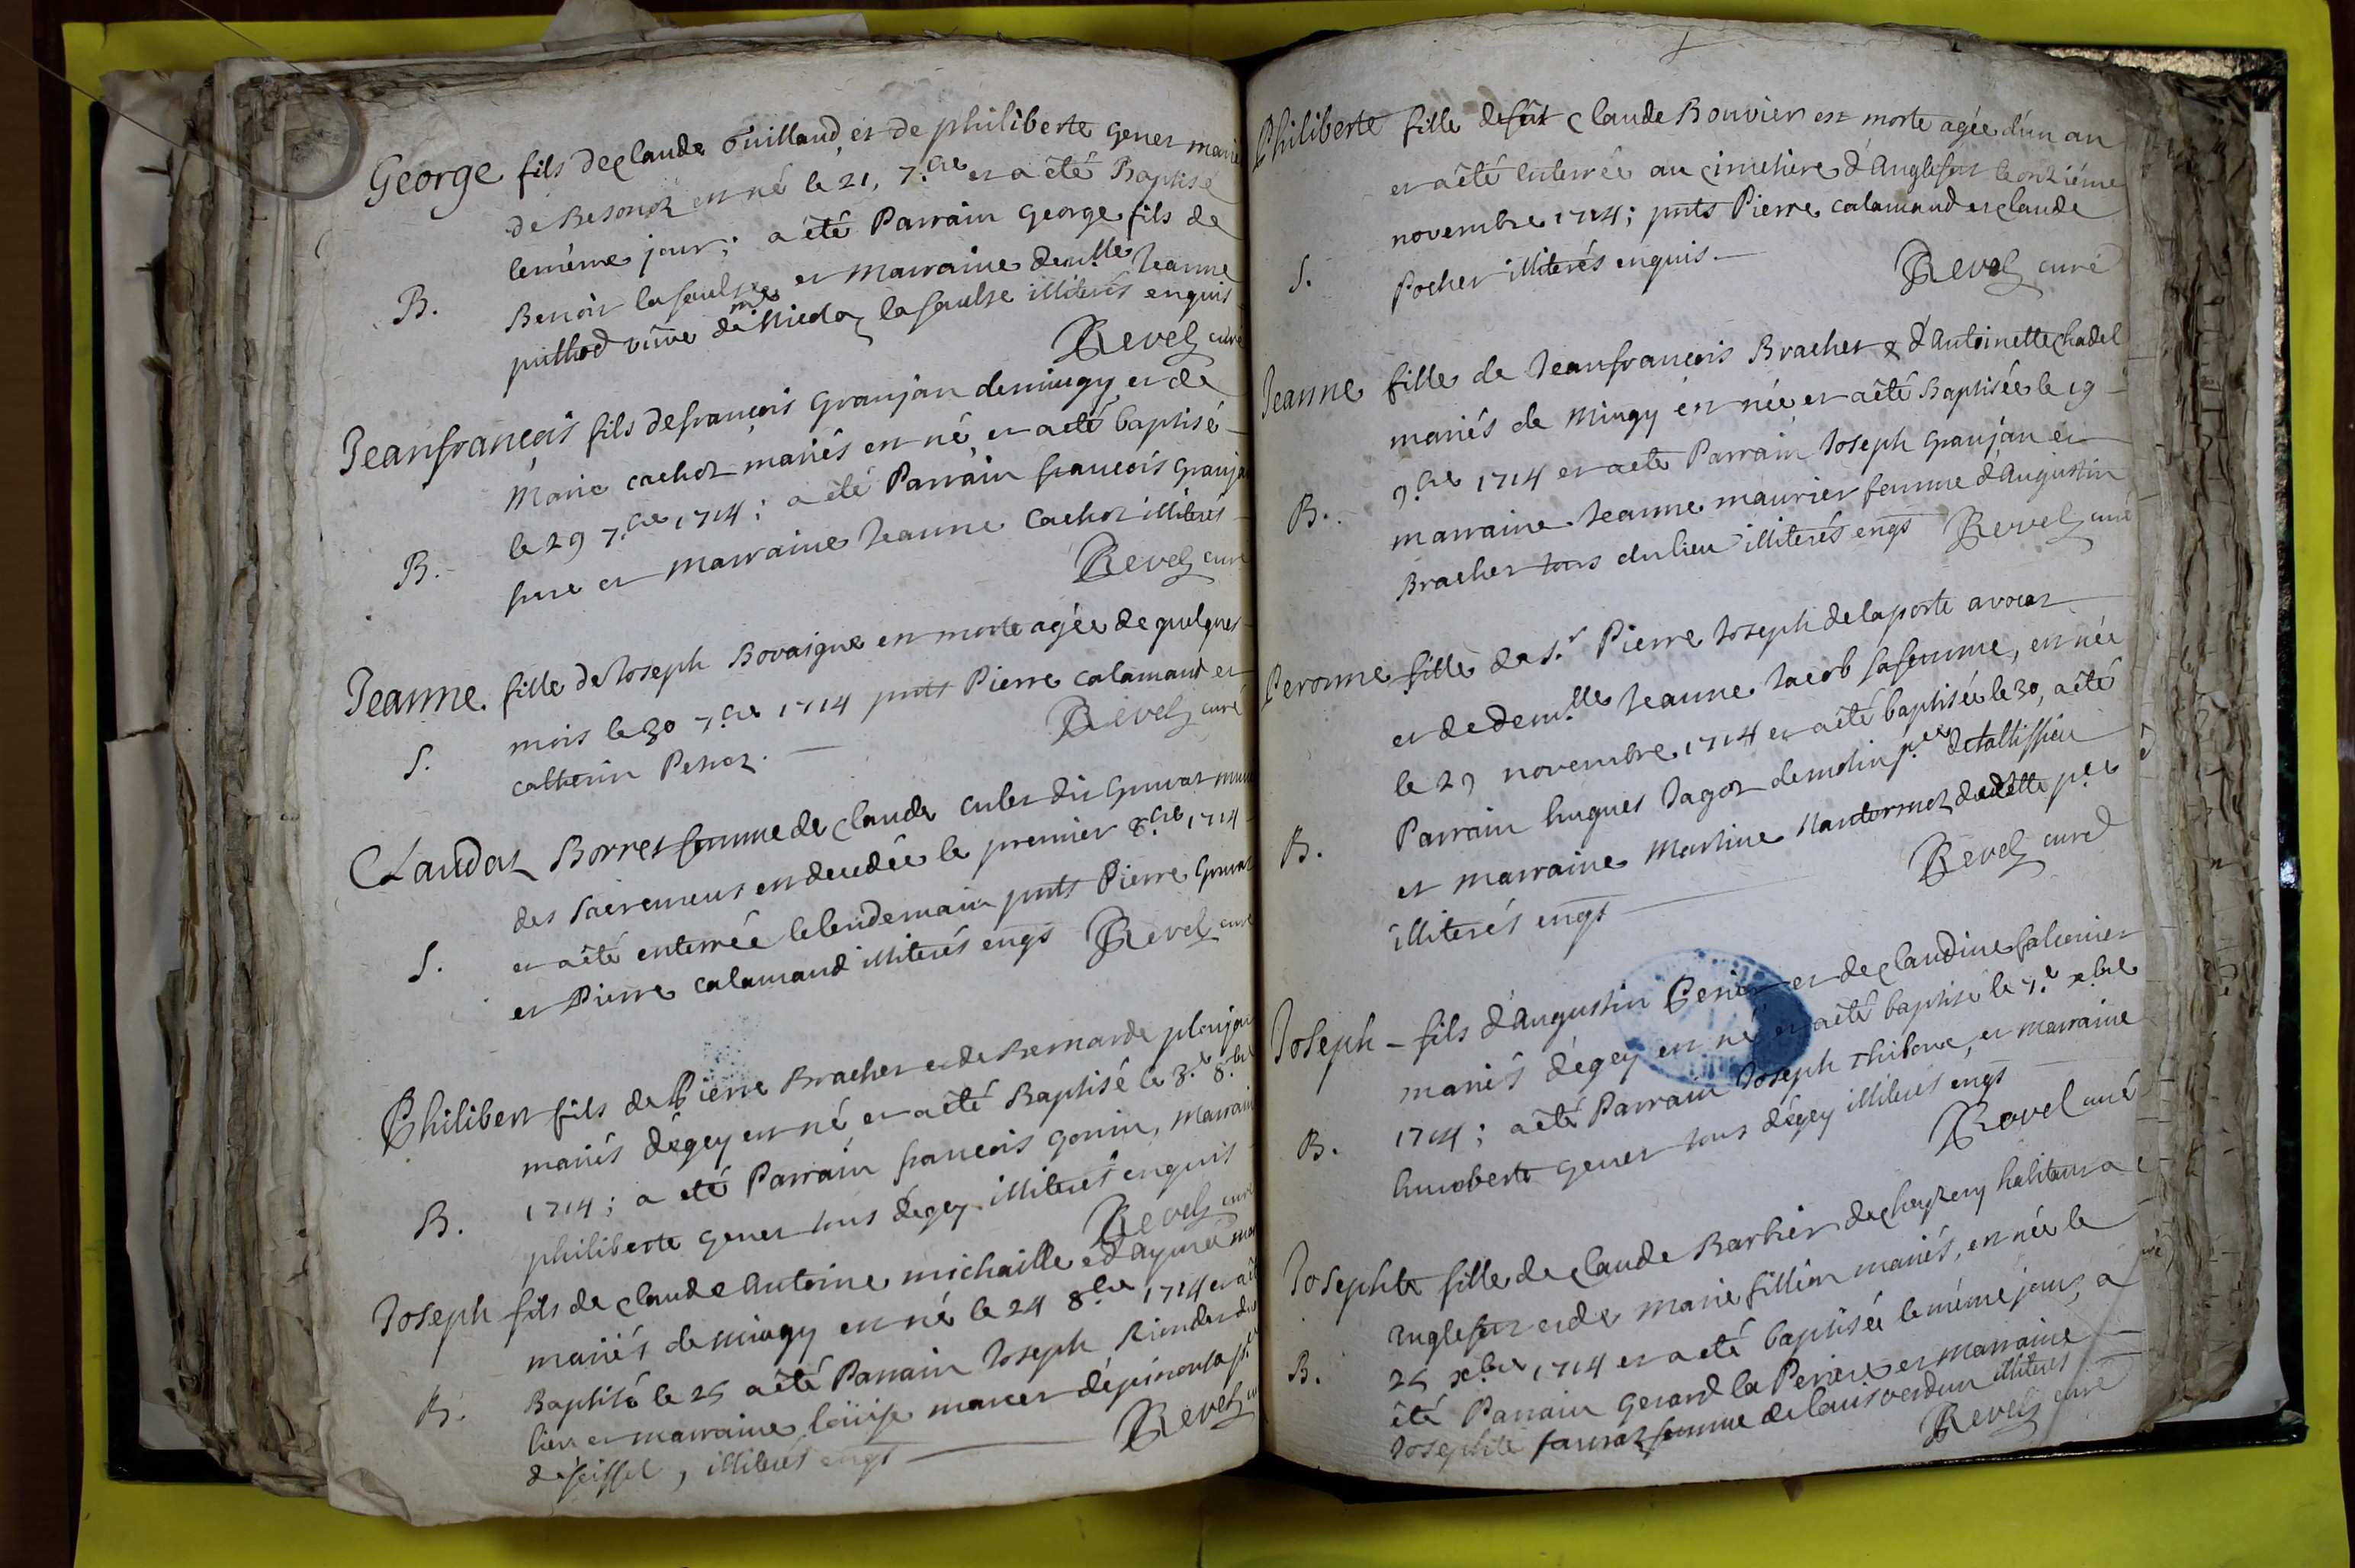 George fils de Claude Guilland et de philiberte gener mariés
de Besonoz est né le 21, 7.bre et a été Baptisé
le même jour; a été Parrain George fils de
B. Benoit la saulse et Marraine Demlle Jeanne
puthod vüve de mre Nicolaz la saulse illiterés enquis
Revel curé
Jeanfrançois fils de françois Granjan de mingy et de
Marie cachoz mariés est né et a eté baptisé
B. le 29 7.bre 1714; a été Parrain francois Granjan
frere et Marraine Jeanne Cachoz illiterés
Revel curé
Jeanne. fille de Joseph Bovaigne est morte agée de quelques
S. mois le 30 7.bre 1714 pnts Pierre calamand et
catherin Pernoz.
Revel curé
Claudaz Borret femme de Claude culet dit Gruvat munie
des sacremens est decedée le premier 8.bre 1714
S. et a été enterrée le lendemain pnts Pierre Gruvat
et Pierre calamand illiterés enqs Revel curé
Philibert fils de Pierre Bracher et de Bernarde planjan
mariés dégey est né et a été Baptisé le 3.e 8.bre
B. 1714; a eté Parrain francois gonin, marraine
philiberte gener tous dégey illiterés enquis
Revel curé
Joseph fils de Claude Antoine michaille et d'aymé
mariés de mingy est né le 24 8bre 1714 et a été
B. Baptisé le 25 a été Parrain Joseph du
lieu et marraine loüise
de seissel, illiterés enqs
Revel
Philiberte fille de fût Claude Bouvier est morte agée d'un an
et a été enterrée au cimetiere d'Anglefort le onziéme
novembre 1714; pnts Pierre calamand et claude
S. Pocher illiterés enquis.
Revel curé
Jeanne fille de Jeanfrancois Bracher & d'Antoinette Chadel
mariés de Mingy est née et a été Baptisée le 19
B. 9.bre 1714 et a eté Parrain Joseph Granjan et
marraine Jeanne maurier femme d'Augustin
Bracher tous du lieu illiterés enqs Revel curé
Peronne fille de S.r Pierre Joseph delaporte avocat
et de demlle Jeanne Jacob sa femme, est née
le 29 novembre 1714 et a été baptisée le 30, a été
B. Parrain hugues Jagoz demolin psse de tallissieu
et marraine Martine Nantermoz dudette psse
illiterés enqs
Revel curé
Joseph - fils d'Augustin Perier et de Claudine falconier
mariés dégey est né et a été baptisé le 7.e xbre
B. 1714; a été Parrain Joseph Thibone, et marraine
humberte gener tous dégey illiterés enqs
Revel curé
Josephte fille de Claude Barbier de Cheyzery habitant a
Anglefort et de Marie fillion mariés, est née le
B. 25 xbre 1714 et a eté baptisée le même jour, a
été Parrain Gerard la Periere et marraine
Josephte femme de louis verdun illiterés
Revel curé